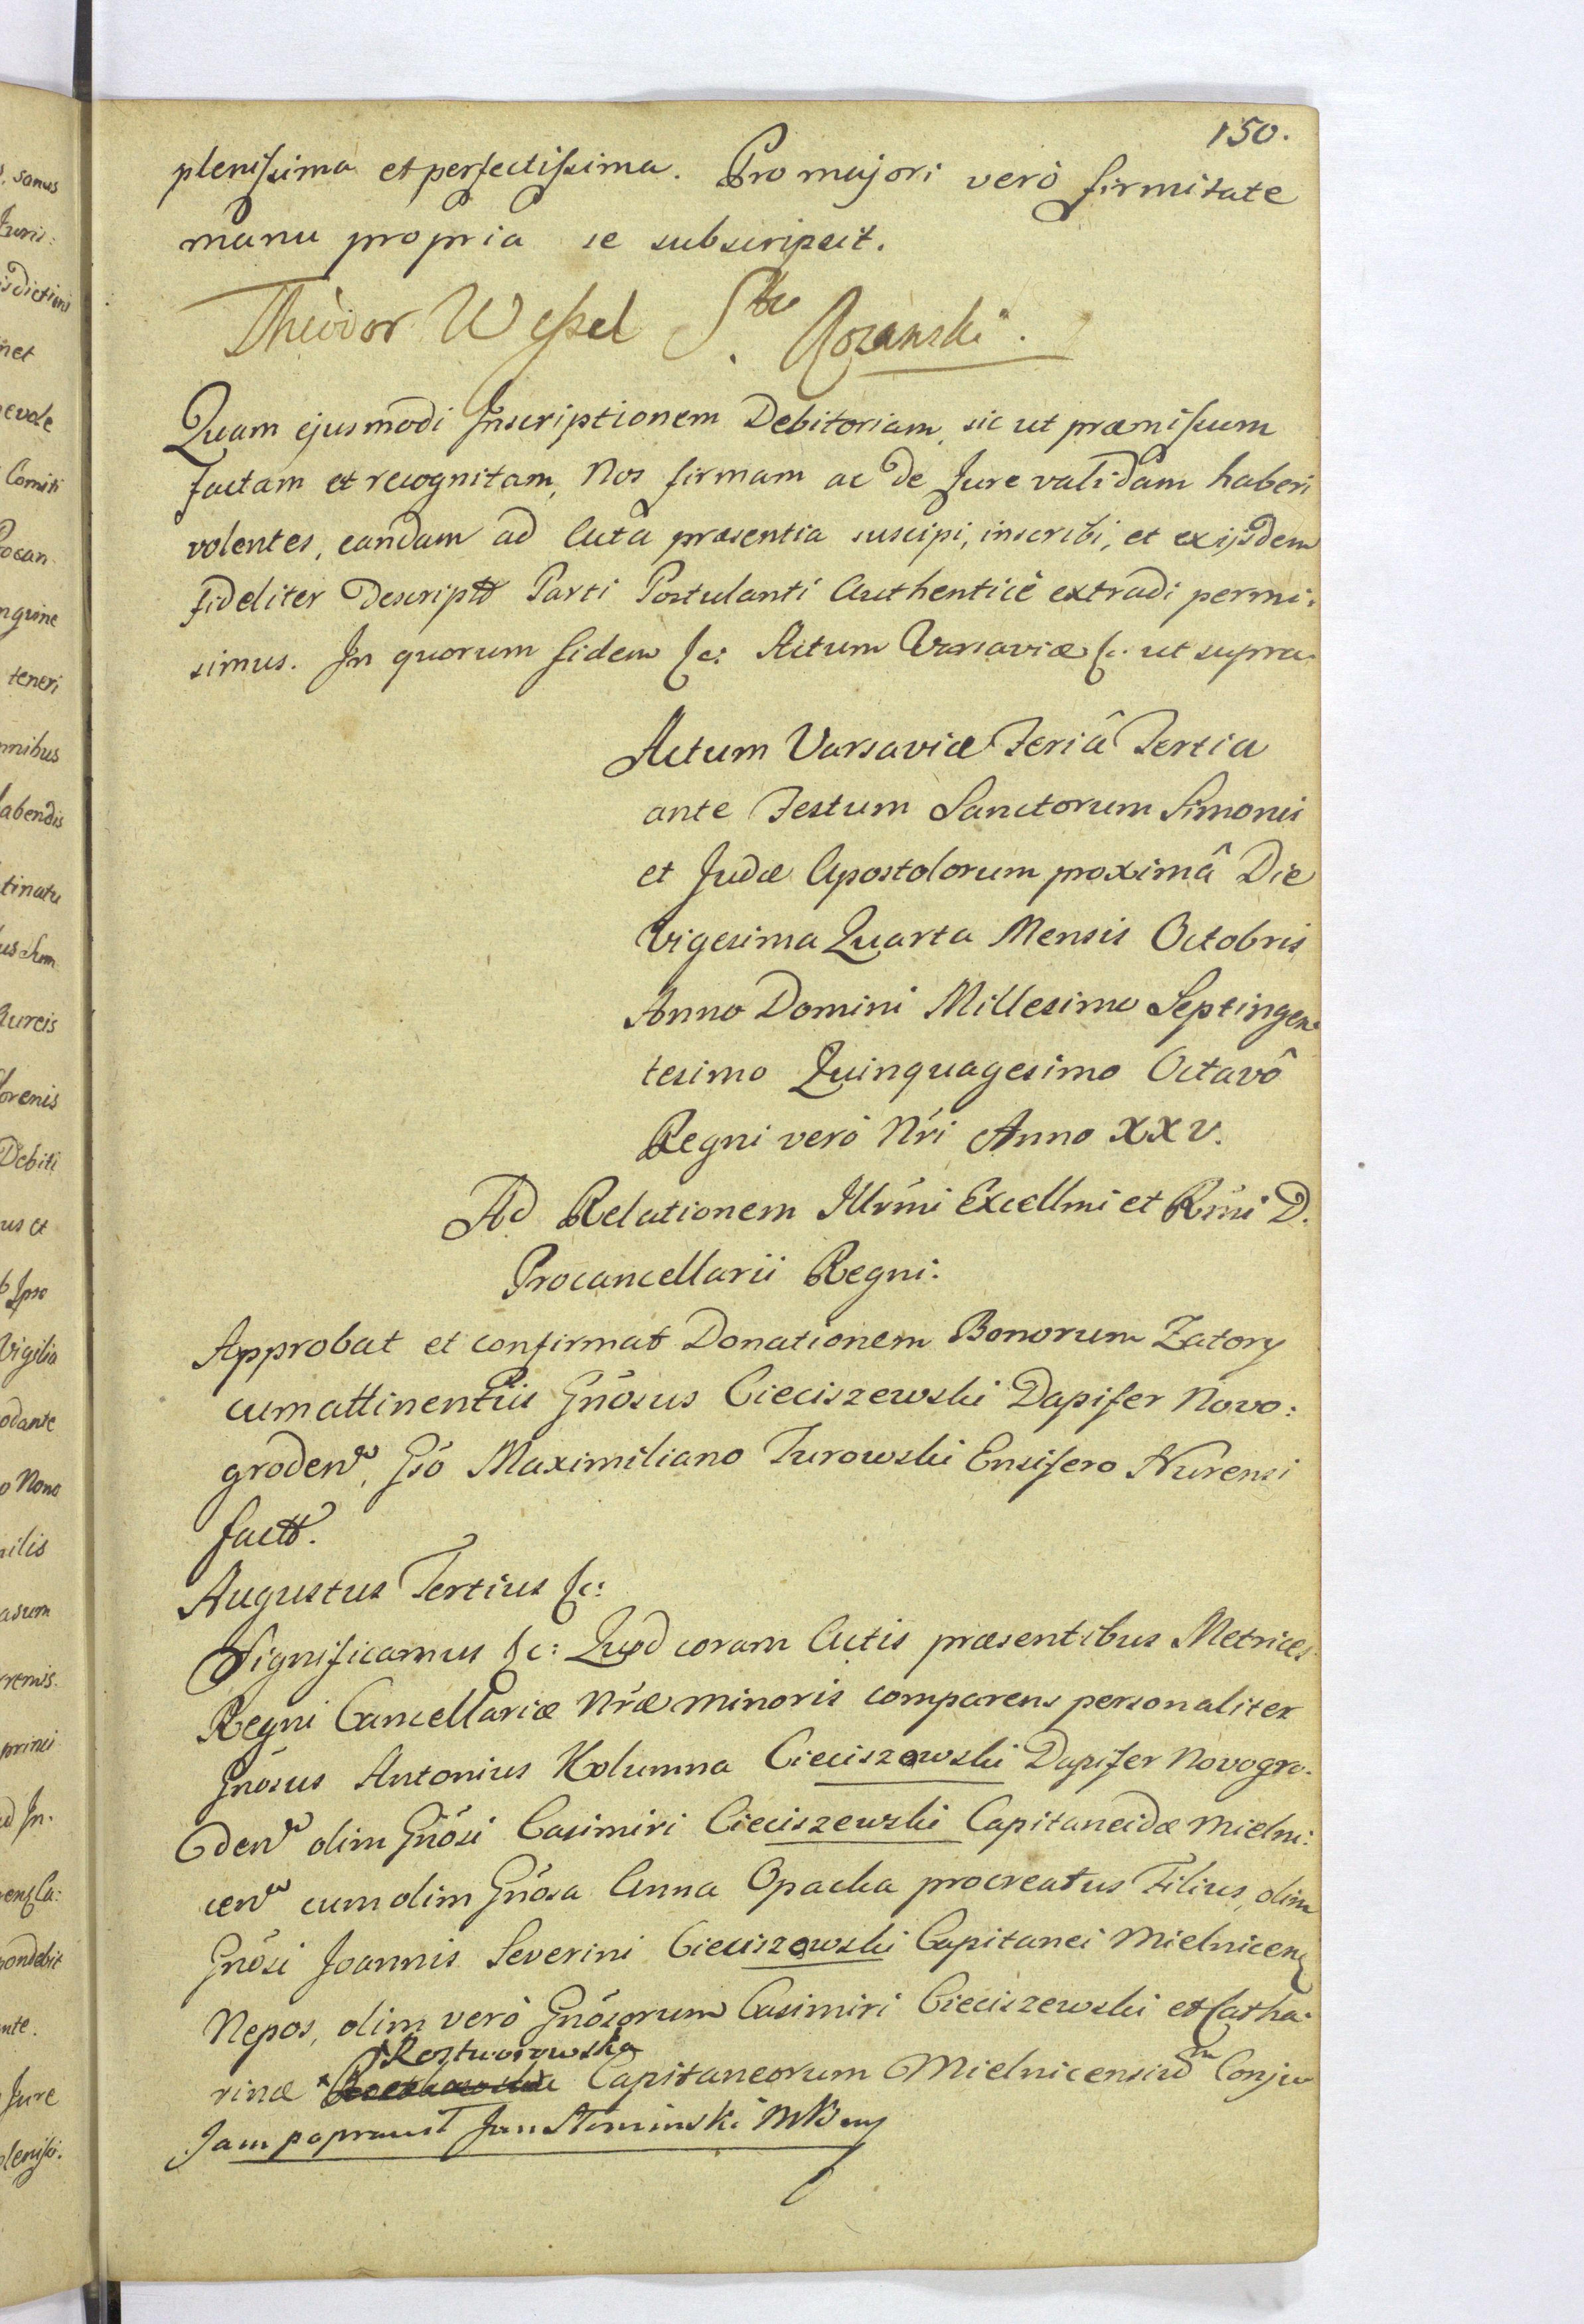 150.
plenissima et perfectissima. Pro majori verò firmitate
manu propria se subscripsit.
Theodor Wessel Sta Rozanski.
Quam ejusmodi Inscriptionem Debitoriam, sic ut præmissum
factam et recognitam, Nos firmam ac de Jure validam haberi
volentes, eandam ad Acta præsentia suscipi, inscribi, et ex ijsdem
fideliter descriptt Parti Postulanti Authenticè extradi permi:
simus. In quorum fidem &c: Actum Varsaviæ &c. ut supra.
Actum Varsaviæ Feriâ Tertia
ante Festum Sanctorum Simonis
et Judæ Apostolorum proximâ Die
Vigesima Quarta Mensis Octobris
Anno Domini Millesimo Septingen:
tesimo Quinquagesimo Octavô
Regni verò Nri Anno XXV.
Ad Relationem Illrmi Excellmi et Rmi D.
Procancellarii Regni:
Approbat et confirmat Donationem Bonorum Zatory
cum attinentiis Gnosus Cieciszewski Dapifer Novo:
groden, Gso Maximiliano Turowski Ensifero Nurensi
factt.
Augustus Tertius &c:
Significamus &c: Quod coram Actis præsentibus Metrices
Regni Cancellariæ Nræ minoris comparens personaliter
Gnosus Antonius Kolumna Cieciszowski Dapifer Novogro:
den olim Gnosi Casimiri Cieciszewski Capitaneidæ Mielni:
cen cum olim Gnosa Anna Opacka procreatus Filius, olim
Gnosi Joannis Severini Cieciszowski Capitanei Mielnicen
Nepos, olim verò Gnosorum Casimiri Cieciszewski et Catha:
Rostworowska
rinæ Capitaneorum Mielnicensium Conju
Jam poprawił Jan Słominski MK mp